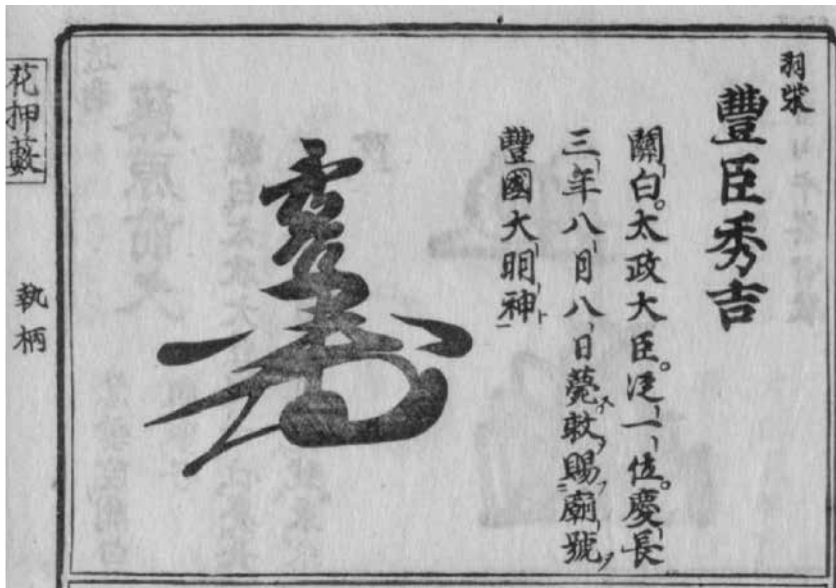 羽柴
豐臣秀吉
關白。太政大臣。從一位。慶長
三年八月八日薨敕賜廟號
豐國大明神
花押藪
執柄